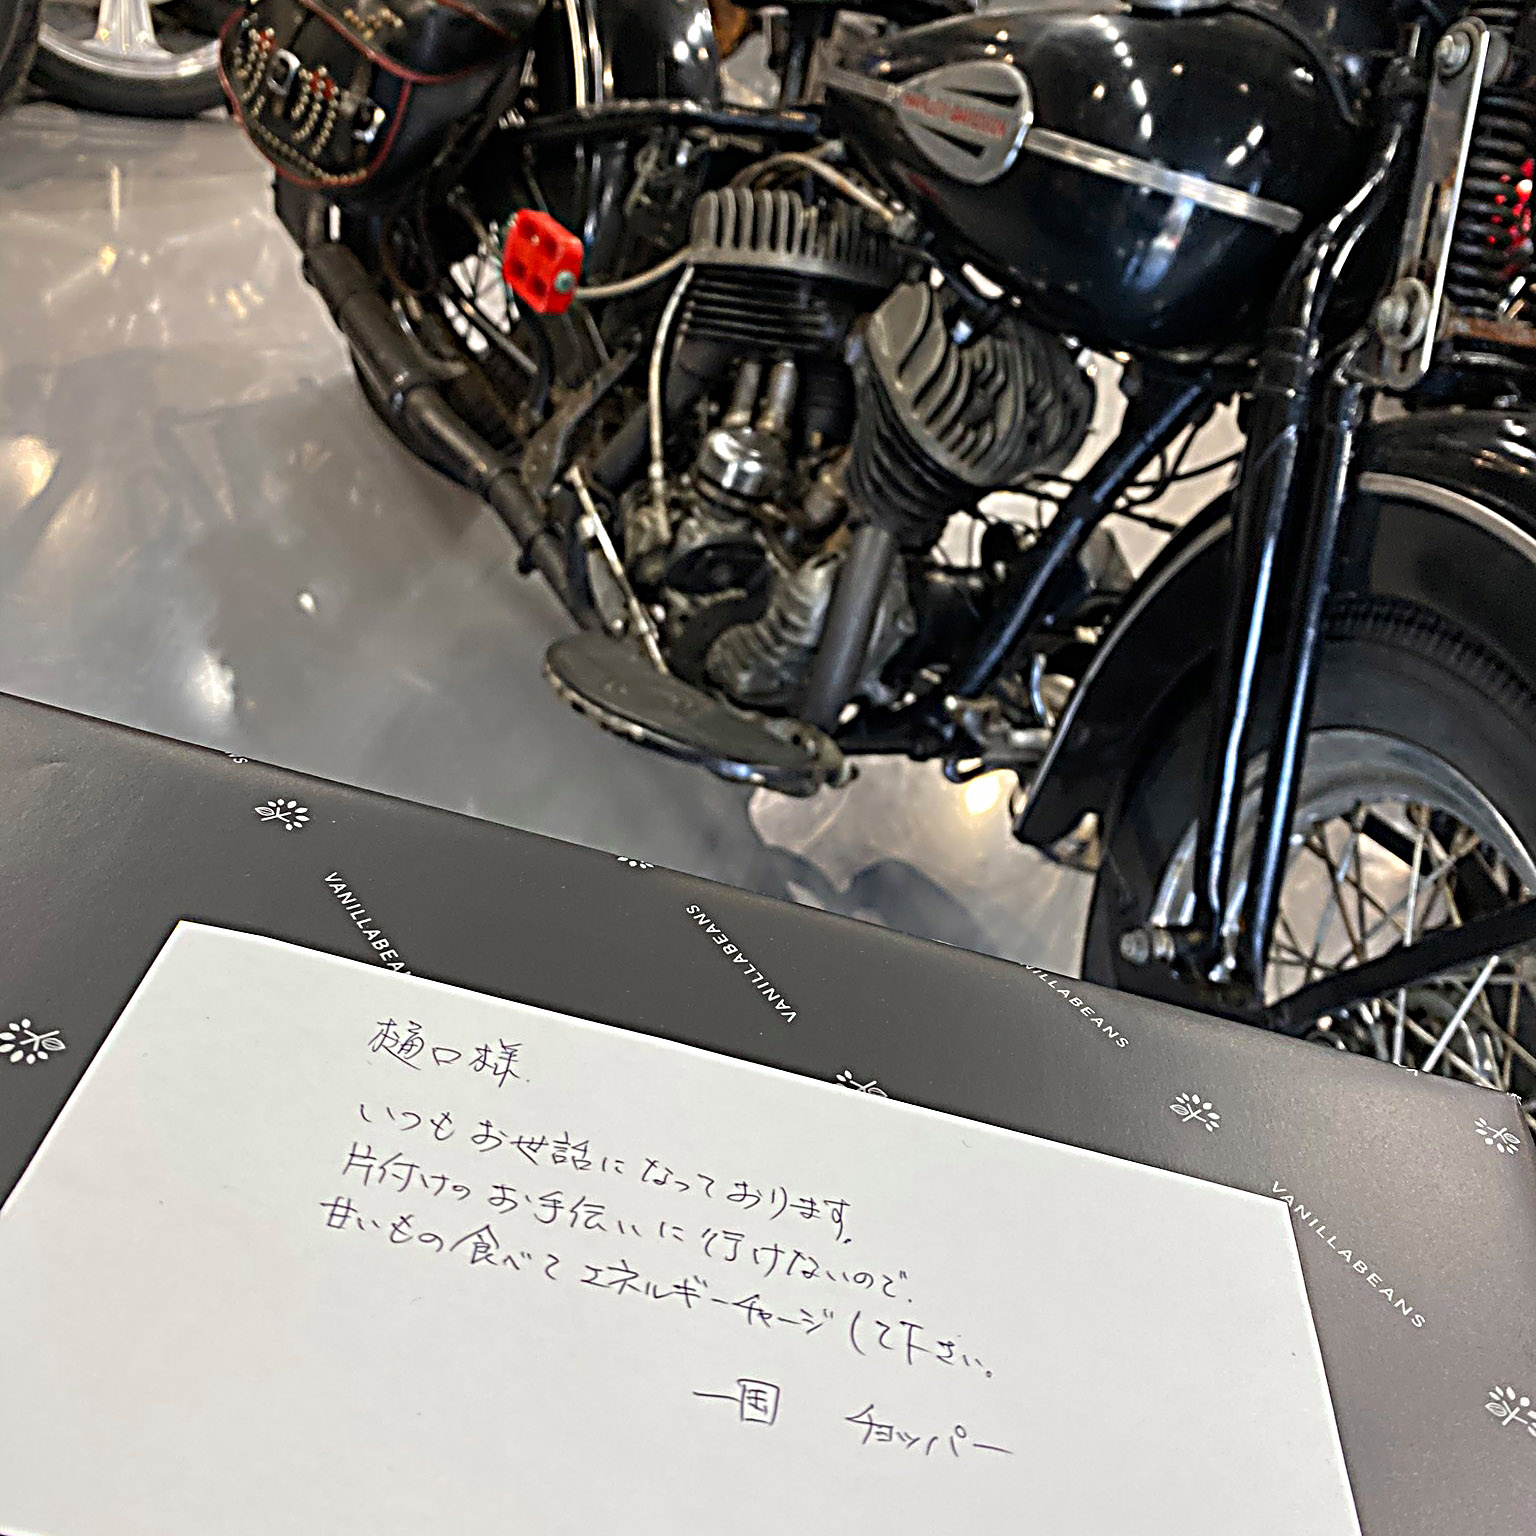 HARLEY-DAVIDSON
VANILLABEANS
VANILLABEANS
VANILLABEANS
VANILLABEANS
樋口様
いつもお世話になっております。
片付けのお手伝いに行けないので、
甘いもの食べてエネルギーチャージして下さい。
一国 チョッパー